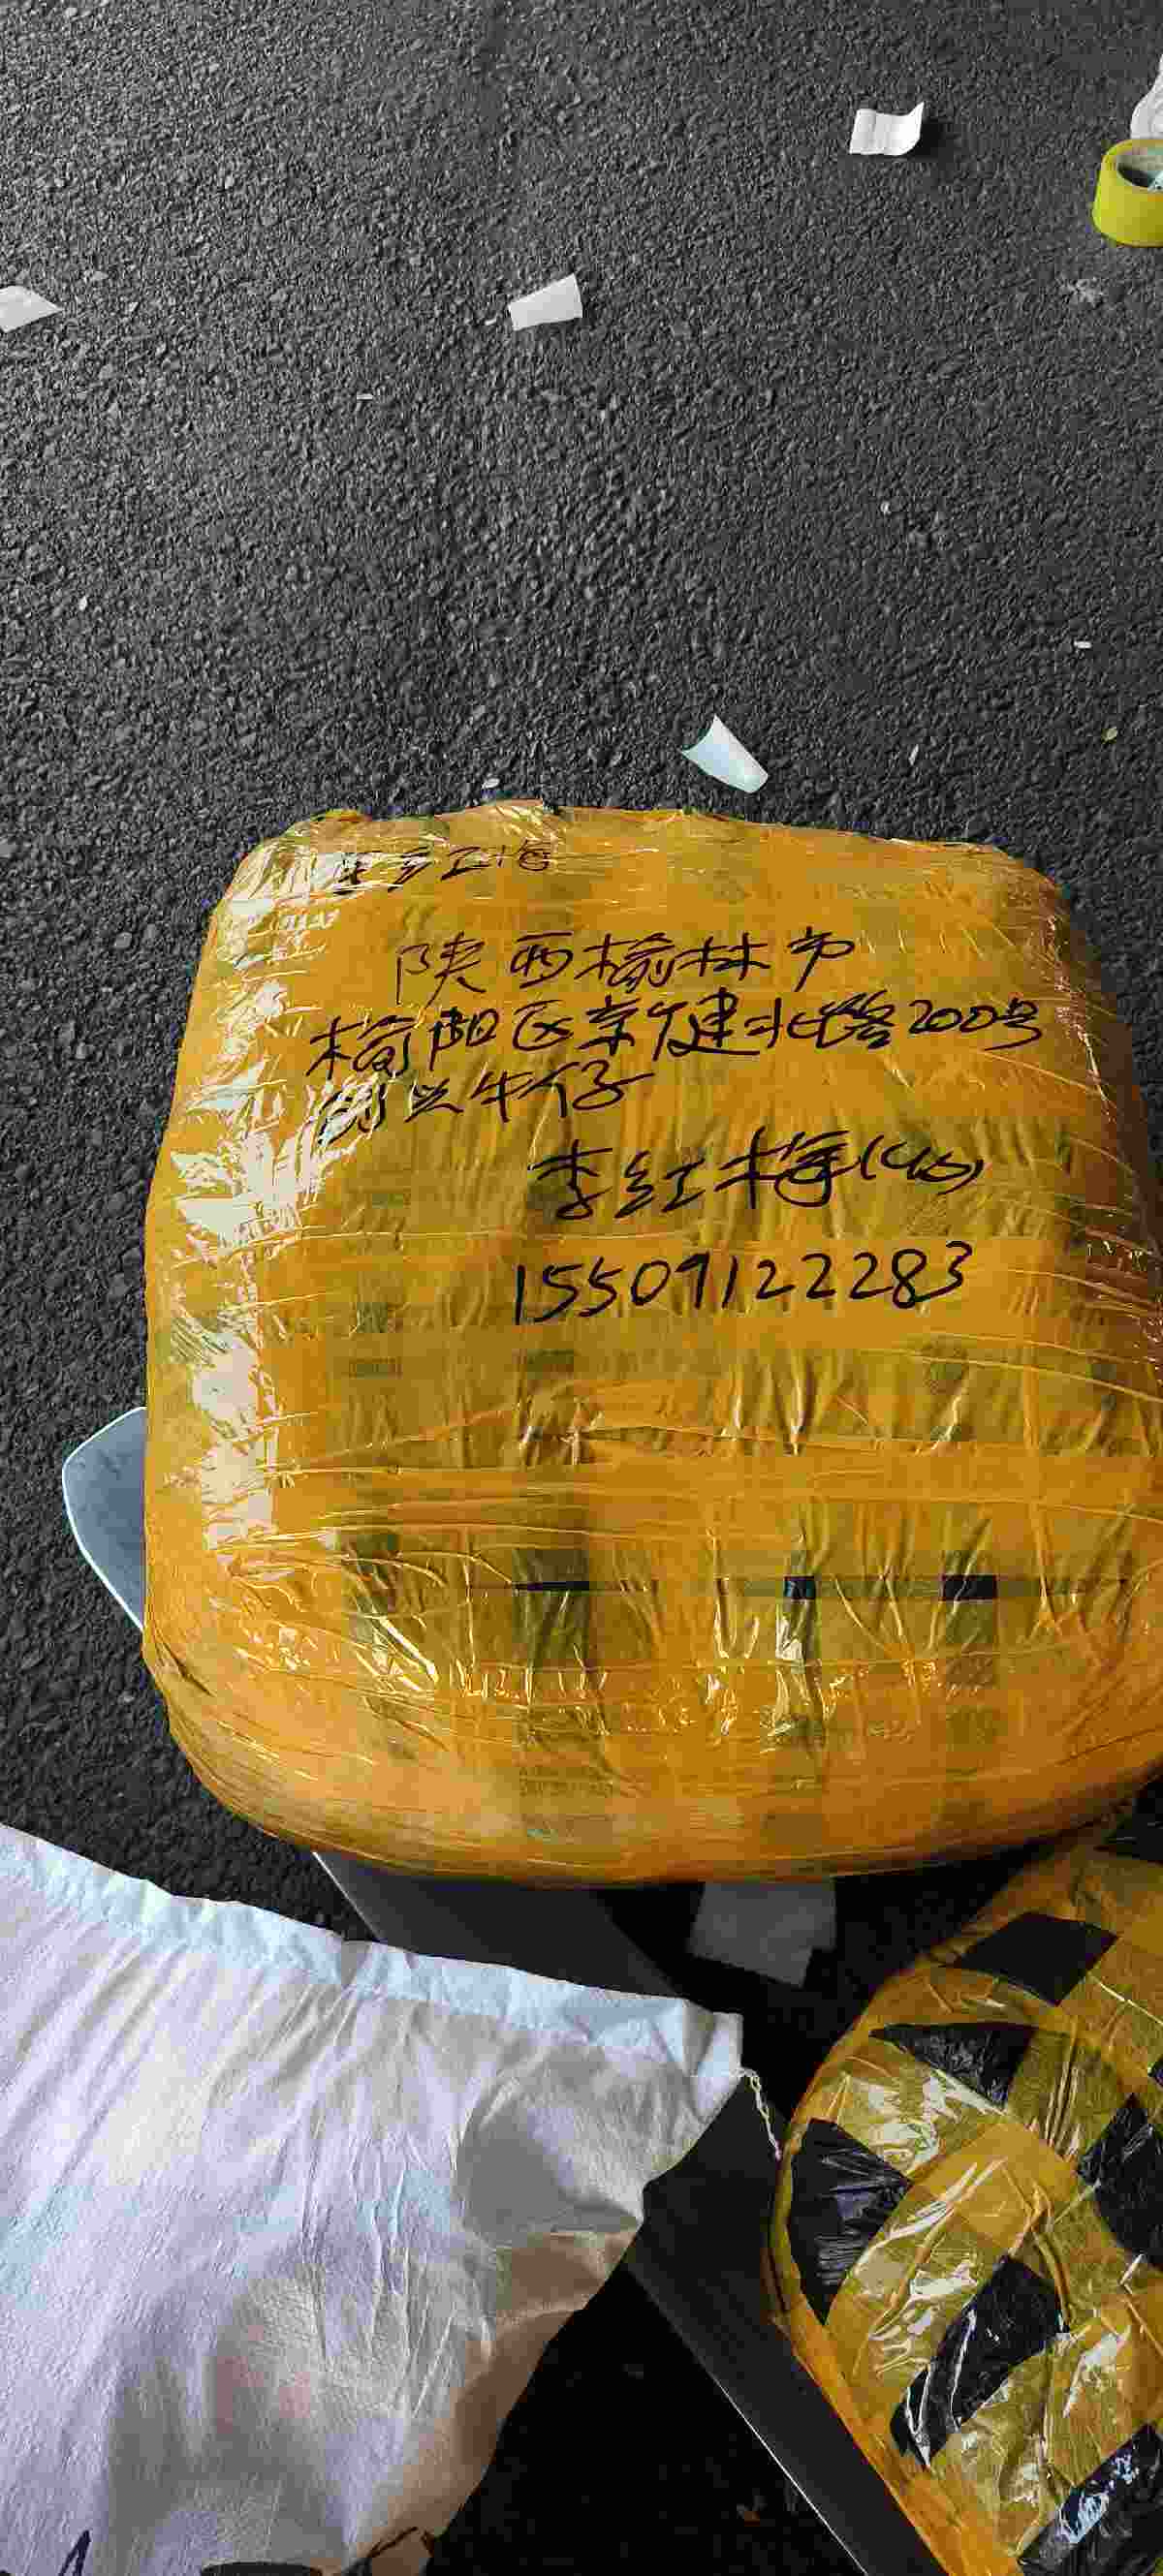 陕西榆林市
榆阳区 北路200号
牛仔
李红梅(46)
15509122283